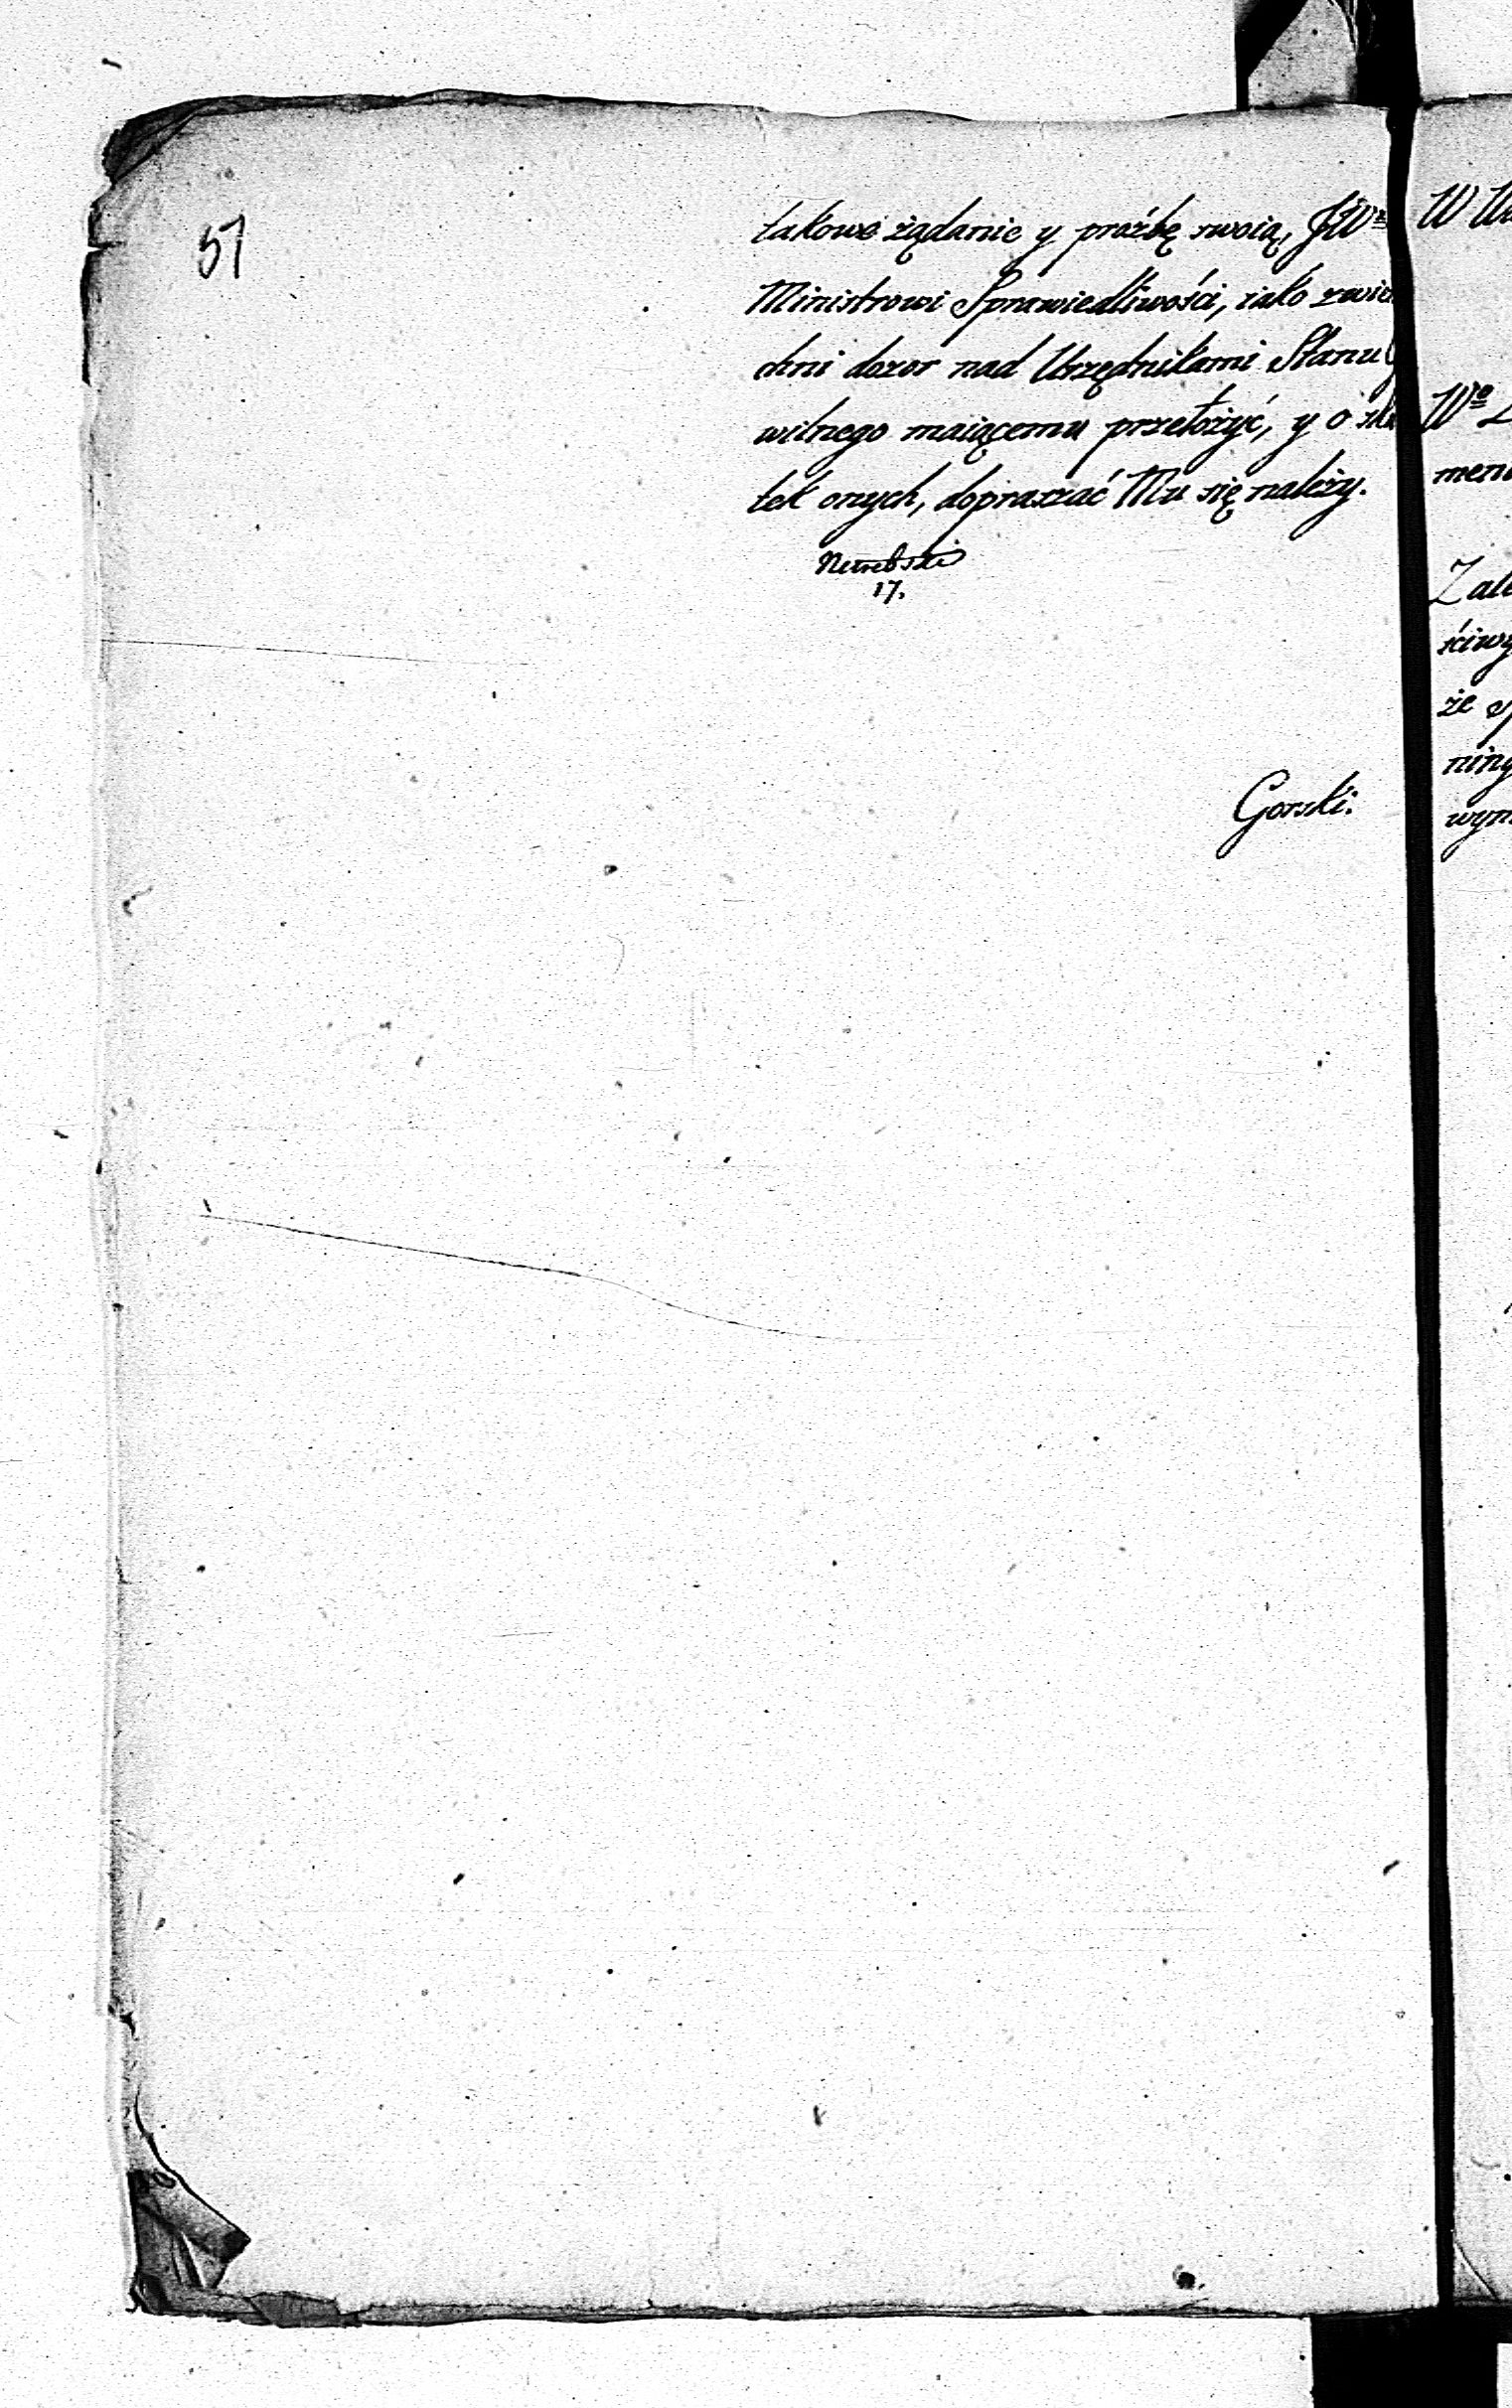 57
takowe żądanie y prożbę swoią, JW
Ministrowi Sprawiedliwości, iako zwierz
chni dozor nad Urzędnikami Stanu C
wilnego maiącemu przełożyć, y o sku
tek onych, dopraszać Mu się należy.
17.
Gorski.
W
W°
men
Zale
ściwy
że
niny
wym